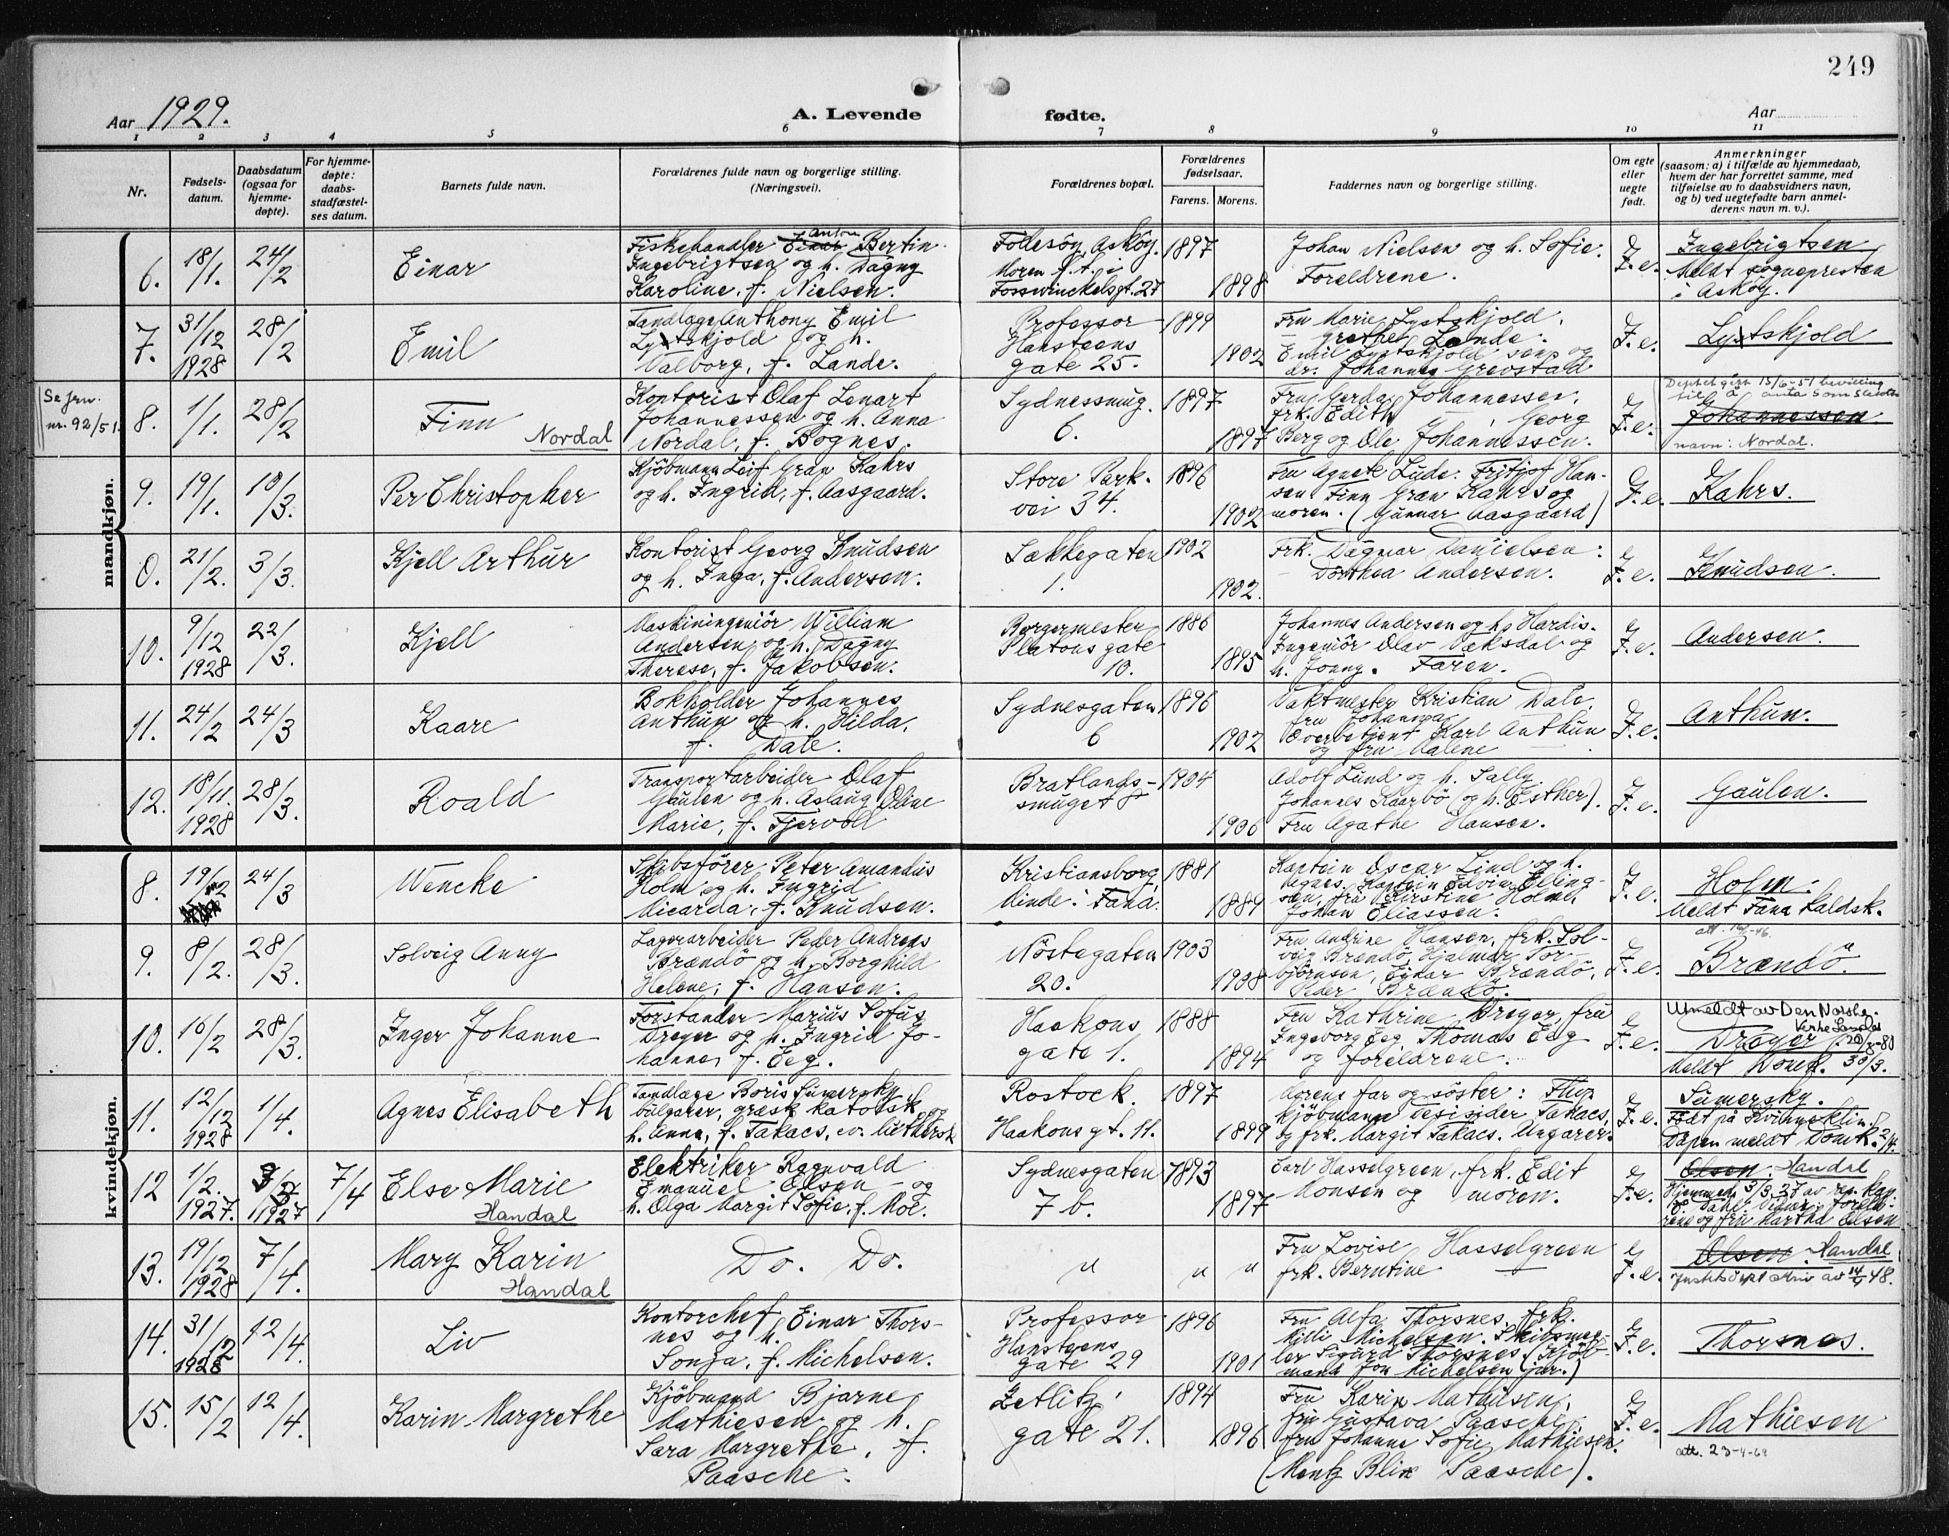 249
Aar 1929.
A. Levende fødte.
Aar
1 2 3 4 5 6 7 8 9 10 11
Nr.
Fødsels-
datum.
Daabsdatum
(ogsaa for
hjemme-
døpte).
For hjemme-
døpte:
daabs-
stadfæstel-
ses datum.
Barnets fulde navn.
Forældrenes fulde navn og borgerlige stilling.
(Næringsvei).
Forældrenes bopæl.
Forældrenes
fødselsaar.
Farens. Morens.
Faddernes navn og borgerlige stilling.
Om egte
eller
uegte
født.
Anmerkninger
(saasom: a) i tilfælde av hjemmedaab,
hvem der har forrettet samme, med
tilføielse av to daabsvidners navn,
og b) ved uegtefødte barn anmel-
derens navn m. v.).
mandkjøn.
6. 18/1. 24/2 Einar
Fiskehandler Anton Bertin
Ingebrigtsen og h. Dagny
Karoline, f. Nielsen.
Askøy.
Moren f. t. i
Fosswinckelsgt. 27
1897 1898
Johan Nielsen og h. Sofie.
Foreldrene.
F. e.
Ingebrigtsen
Meldt sognepresten
i Askøy.
7. 31/12 1928 28/2 Emil
Tandlæge Anthony Emil
Lystskjold og h.
Valborg, f. Lande.
Professor
Hansteens
gate 25.
1899 1902
Fru Marie Lystskjold,
Grethe Lande.
Emil Lystskjold senr og
dr. Johannes Grevstad
F. e.
Lystskjold
Se jrn.
nr. 92/51.
8. 1/1. 28/2 Finn
Nordal
Kontorist Olaf Lenart
Johannessen og h. Anna
Nordal, f. Bognes.
Sydnessmug.
6.
1897 1897
Fru Gerda Johannessen,
frk. Edith — Georg
Berg og Ole Johannessen.
F. e.
15/6-51 bevilling
til å anta som slekts-
Johannessen
navn: Nordal.
9. 19/1. 10/3. Per Christopher
Kjöbmann Leif Gran Kahrs
og h. Ingrid, f. Aasgaard.
Store Park-
vei 34.
1896 1902
Fru Agnete Lude. Fritjof Han-
sen Finn Gran Kahrs og
moren. (Gunnar Aasgaard)
F. e.
Kahrs.
0. 21/2. 3/3. Kjell Arthur
Kontorist Georg Knudsen
og h. Inga, f. Andersen.
Sækkegaten
1.
1902 1902.
Frk. Dagmar Danielsen:
— Dorthea Andersen.
F. e.
Knudsen.
10. 9/12 1928 22/3. Kjell
Maskiningeniör William
Andersen og h. Dagny
Therese, f. Jakobsen.
Borgermester
Platous gate
10.
1886 1895
Johannes Andersen og h. Hardis.
Ingeniör Olav Vaksdal og
h. Jonny. Faren.
F. e.
Andersen.
11. 24/2 24/3 Kaare
Bokholder Johannes
Anthun og h. Hilda,
f. Dale.
Sydnesgaten
6
1896 1902
Vaktmester Kristian Dale,
fru Johanna
Karl Anthun
og fru Malene —
F. e.
Anthun.
12. 18/11. 1928 28/3. Roald
Transportarbeider Olaf
Gaulen og h. Aslaug Oline
Marie, f. Fjervold
Bratlands-
smuget 8
1904 1906
Adolf Lund og h. Sally.
Johannes Kaarbö (og h. Esther).
Fru Agathe Hansen.
F. e.
Gaulen.
kvindekjøn.
8. 19/2 24/3 Wencke
Skibsförer Peter Amandus
Holm og h. Ingrid
Ricarda, f. Knudsen.
Kristiansborg,
Minde i Fana.
1881 1889
Kaptein Oscar Lind og h.
Agnes. Kaptein Edvin Elling-
sen, fru Kirstine Holm,
Johan Eliassen.
F. e.
Holm.
Meldt Fana Kaldsk.
9. 8/2. 28/3. Solveig Anny
Lagerarbeider Peder Andreas
Brændö og h. Borghild
Helene, f. Hansen.
Nöstegaten
20.
1903 1908
Fru Andrine Hansen, frk. Sol-
veig Brændö, Hjalmar Tor-
björnsen, Einar Brændö,
Peder Brændö.
F. e.
Brændö
10. 16/2 28/3. Inger Johanne
Forstander Marius Sofus
Dreyer og h. Ingrid Jo-
hanne, f. Eeg.
Haakons
gate 1.
1888 1894
Fru Kathrine Dreyer, fru
Ingeborg Eeg, Thomas Eeg
og foreldrene.
F. e.
Utmeldt av Den Norske
Kirke
Dreyer
Meldt Domk. 30/3.
11. 12/12 1928 1/4. Agnes Elisabeth
Tandlæge Boris Sumersky
bulgarer, græsk katolsk og
h. Anna, f. Takacs, ev. luthersk
Rostock.
Haakonsgt. 11.
1897 1899
Morens far og söster:
kjöbmann Desider Takacs,
og frk. Margit Takacs. Ungarer.
F. e.
Sumersky.
Födt på Kvinneklin.
Dåpen meldt Domk. 2/4.
12 1/2. 1927. 3/3 1927 7/4 Else Marie
Handal
Elektriker Ragnvald
Emanuel Olsen og
h. Olga Margit Sofie, f. Moe.
Sydnesgaten
7 b.
1893 1897
Carl Hasselgreen, frk. Edit
Monsen og moren.
F. e.
Olsen Handal
Hjemmed. 3/3 27 av res. kap.
Dahl. Vidner: foreld-
rene og fru Martha Olsen
13. 19/12 1928 7/4. Mary Karin
Handal
Do. Do.
" " "
Fru Lovise Hasselgreen
frk. Berntine —
F. e.
Olsen. Handal
Justisdept. skriv av 14/ 48.
14. 31/12 1928 12/4. Liv
Kontorchef Einar Thors-
nes og h.
Sonja, f. Michelsen.
Professor
Hansteens
gate 29
1896 1901
Fru Alfa Thorsnes, frk.
Milli Michelsen. Skibsmeg-
ler Sigurd Thorsnes (Kjöb-
mann Jon Michelsen jur.)
F. e.
Thorsnes.
15. 15/2 12/4. Karin Margrethe
Kjöbmand Bjarne
Mathiesen og h.
Sara Margrethe, f.
Paasche.
Zetlitz
gate 21.
1894 1896
Fru Karin Mathiesen,
fru Gustava Paasche,
fru Johanne Sofie Mathiesen.
(Mentz Blix Paasche).
F. e.
Mathiesen
att. 23-4-69